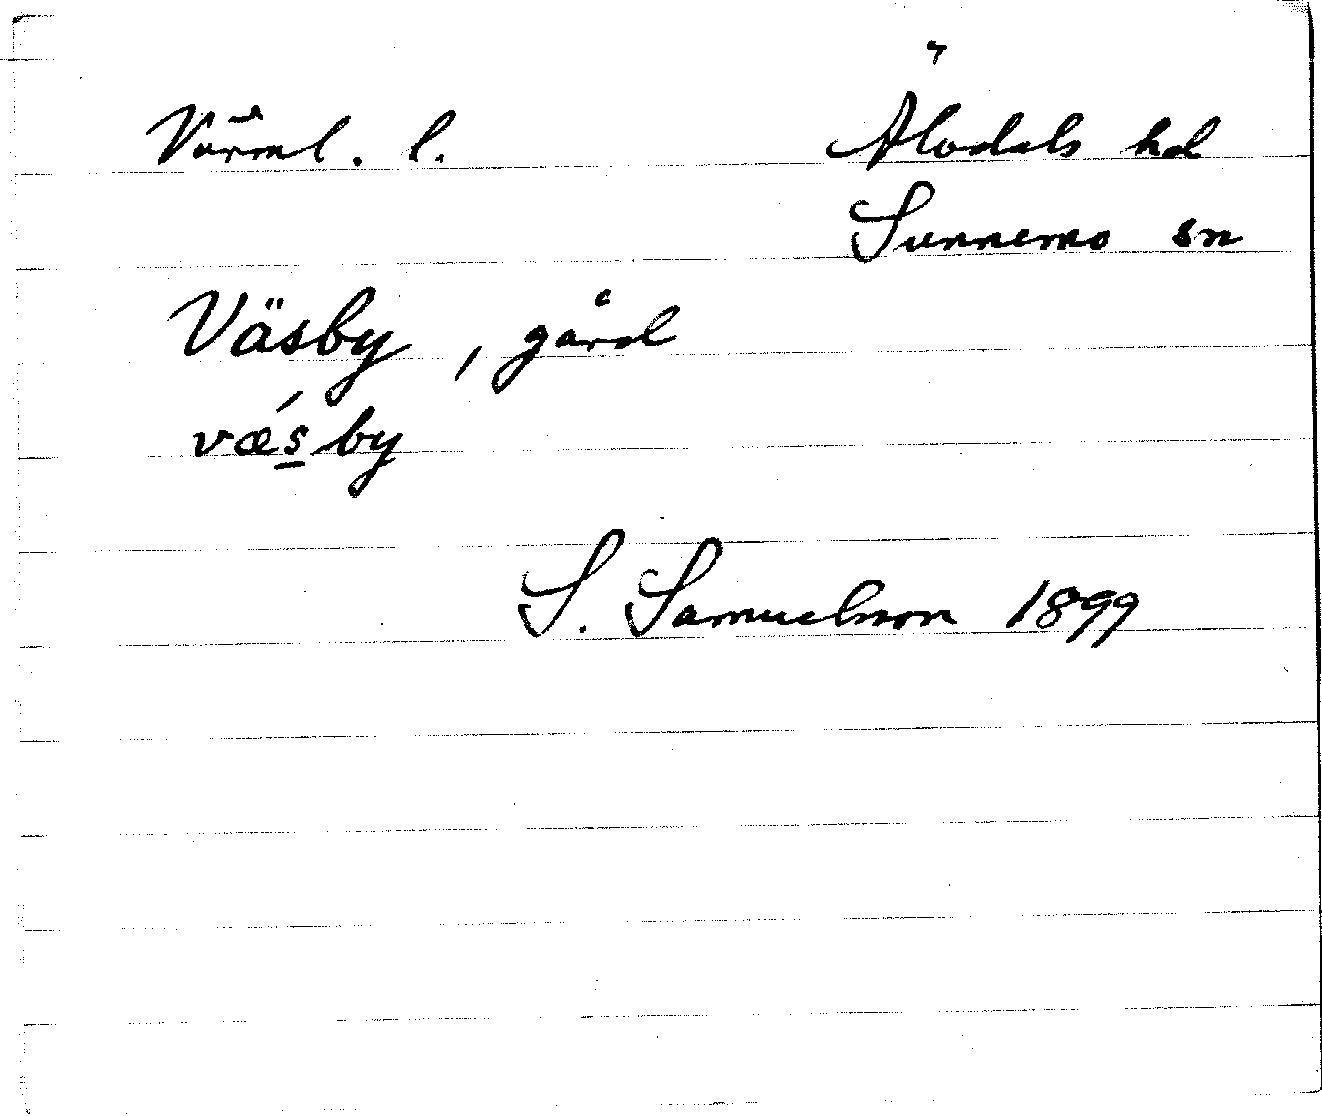 Värml. l. Älvdals hd
Sunnemo sn
Väsby, gård
væ´s̲by
S. Samuelsson 1899